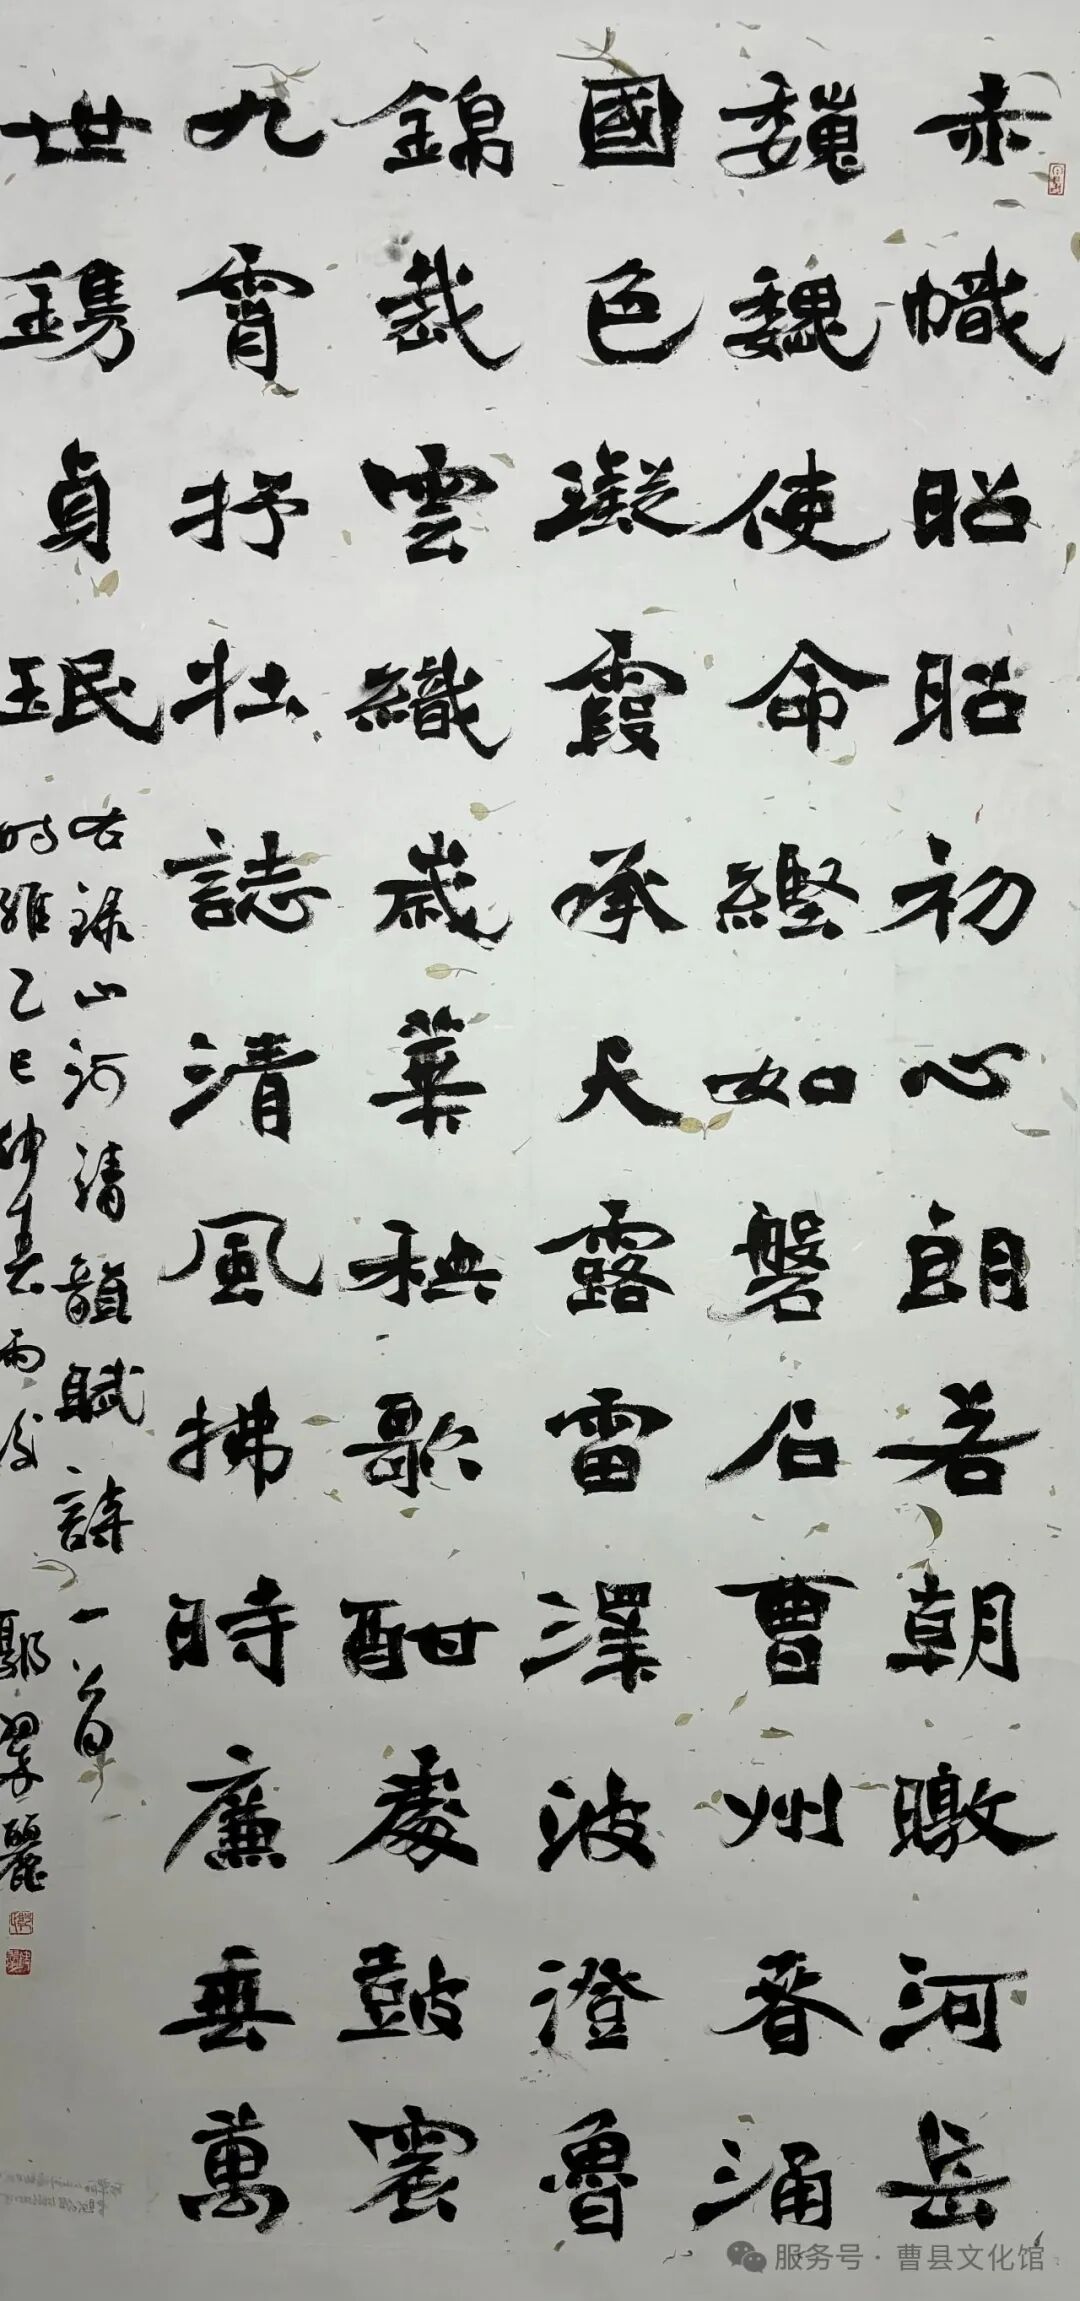 赤幟昭昭初心朗若朝暾河岳
巍巍使命如磐石曹州春涌
國色凝霞承天露雷澤波澄魯
錦裁雲織歲華秧歌酣處鼓震
九霄抒壯誌清風拂時廉垂萬
世鐫貞珉
右錄山河清韻賦詩一首
時維乙巳仲春雨後翠麗
服务号·曹县文化馆